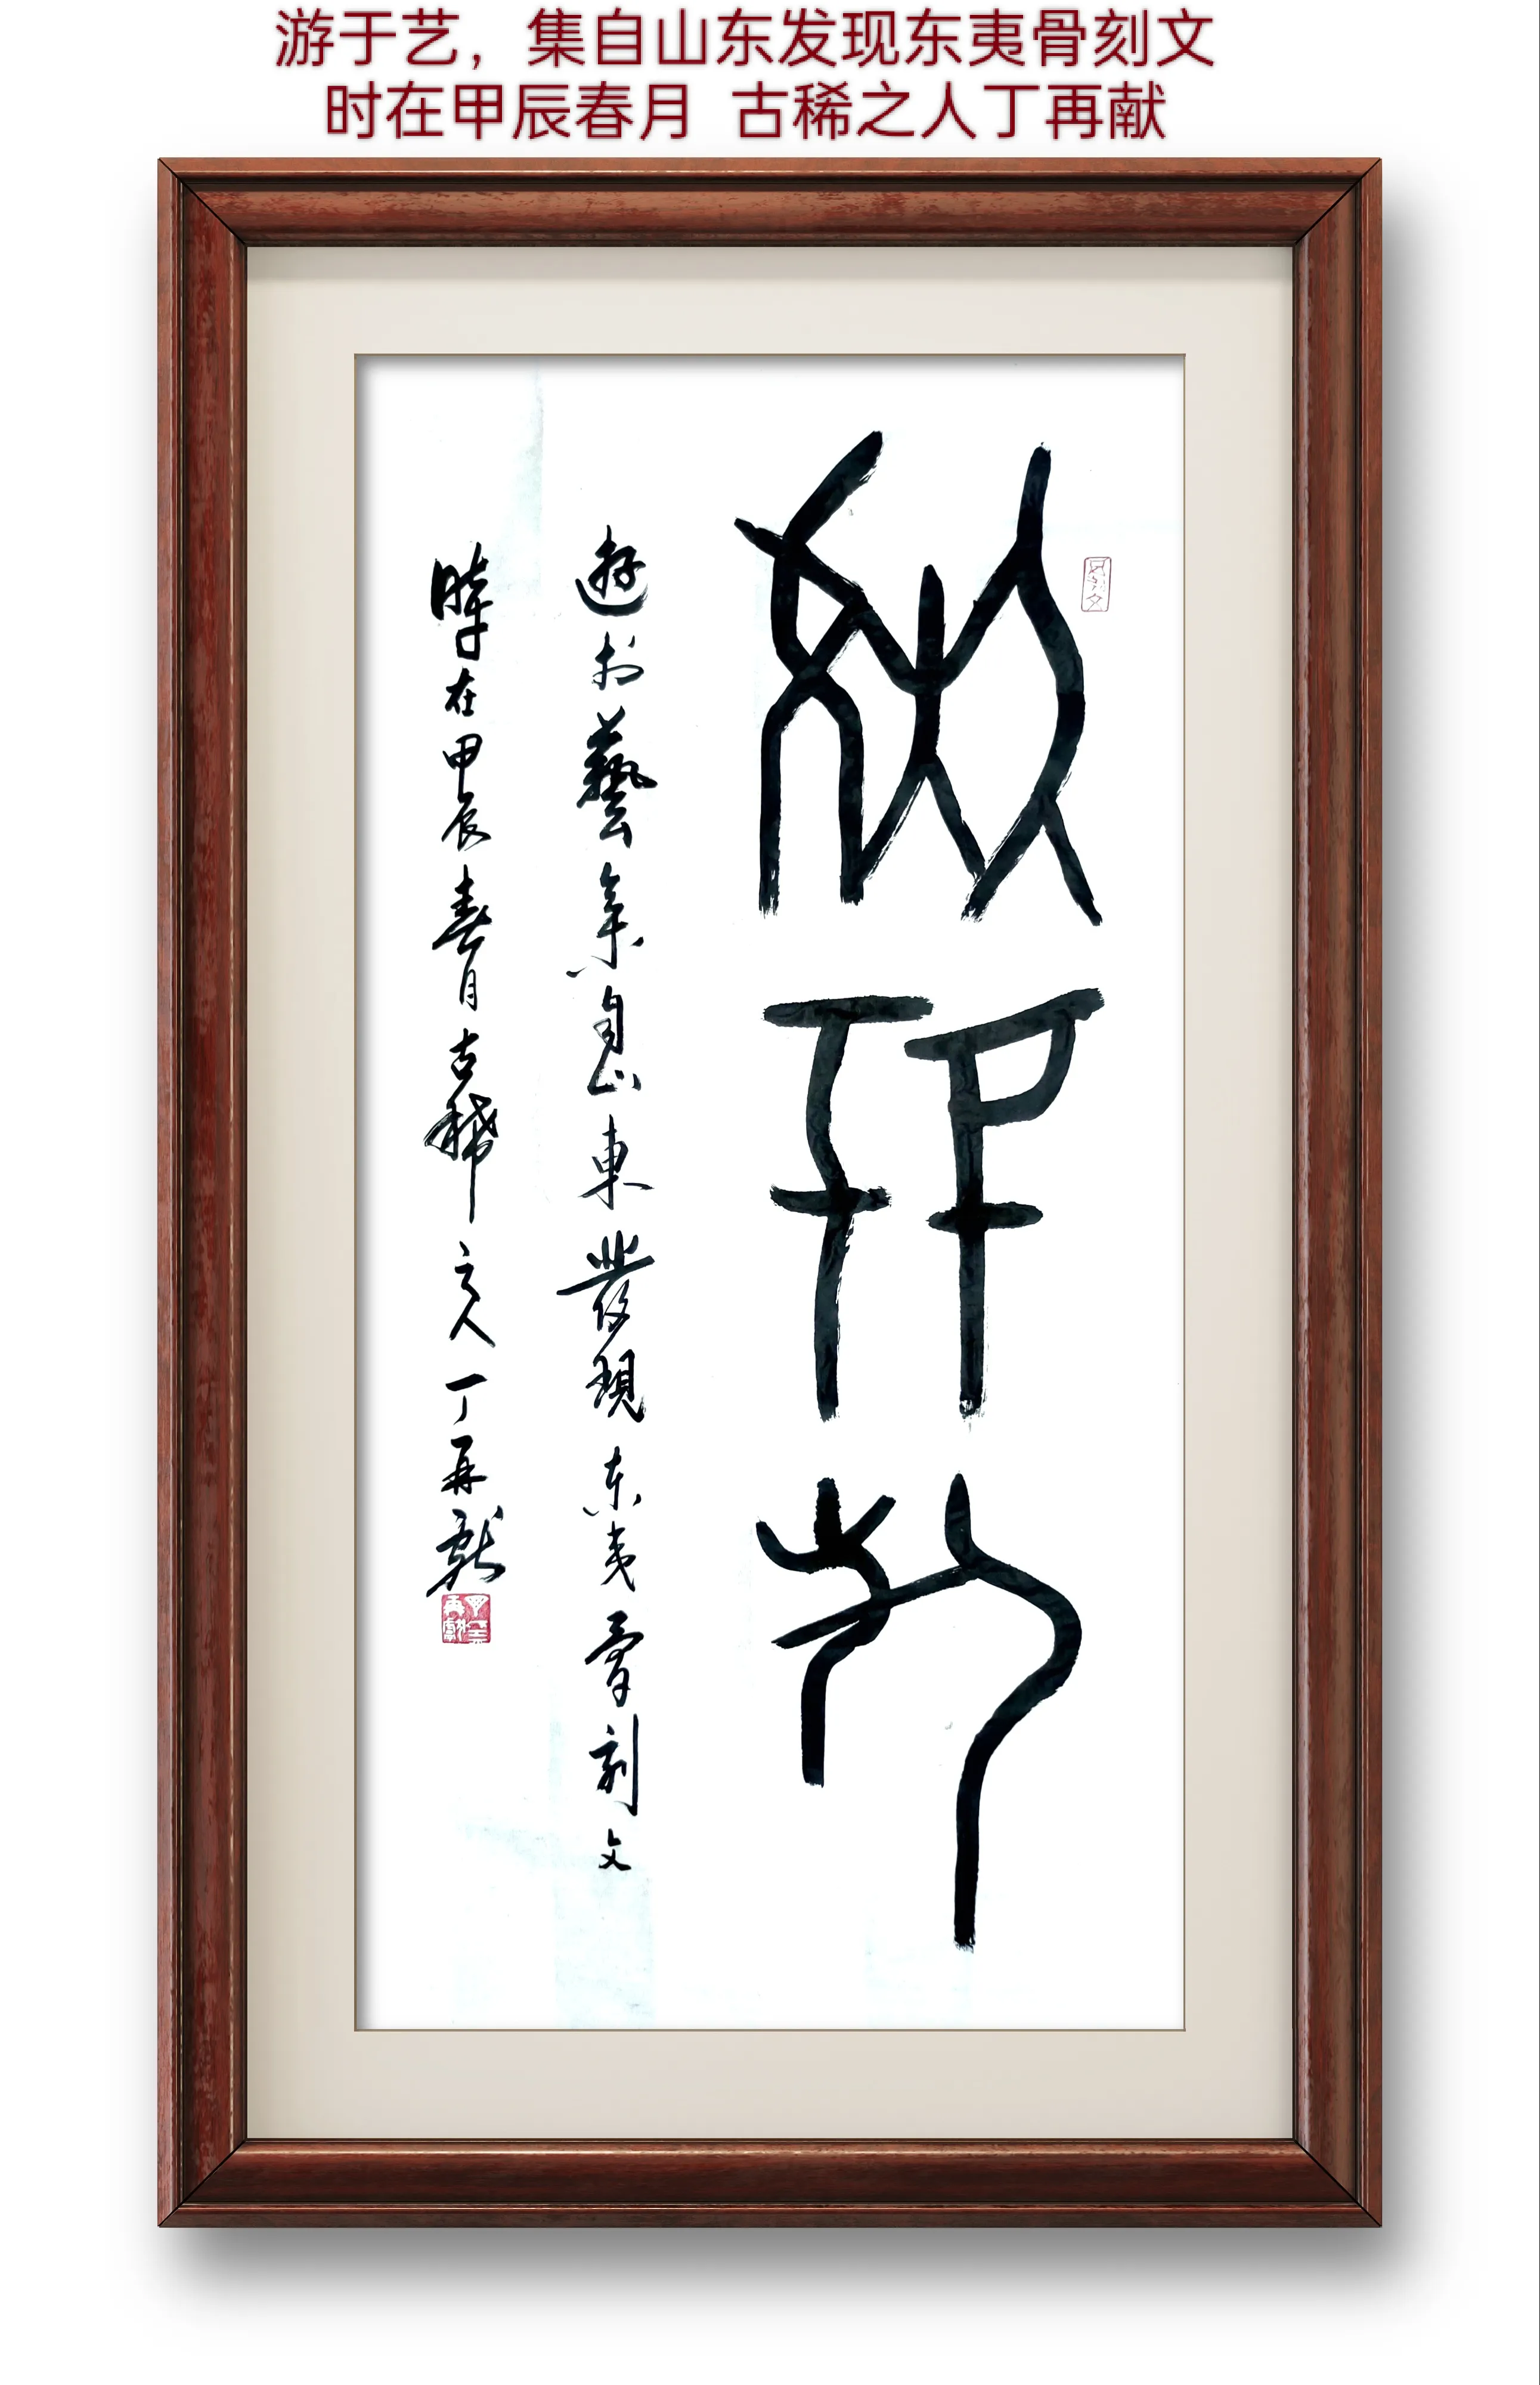 游于艺，集自山东发现东夷骨刻文
时在甲辰春月 古稀之人丁再献
遊於藝集自山東發現东夷骨刻文
時在甲辰春月古稀之人丁再献